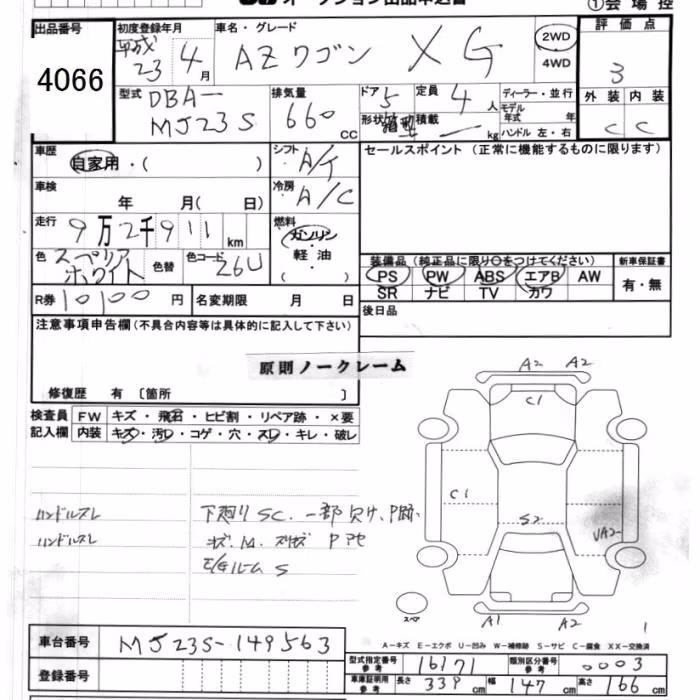 オークション出品申込書
①会場控
出品番号
4066
初度登録年月
平成 23 4月
車名・グレード
AZワゴン XG
2WD
4WD
評価点
3
外装 内装
C C
型式
DBA-
MJ23S
排気量
660 cc
ドア 5
定員 4人
形状 箱型
積載 — kg
ディーラー・並行
モデル
年式 年
ハンドル 左・右
車歴
自家用・( )
シフト
A/T
セールスポイント (正常に機能するものに限ります)
車検
年 月( 日)
冷房
A/C
走行
9万2千911 km
燃料
ガソリン
軽油
( ・ )
色
スペリア
ホワイト
色替
色コード 26U
装備品 (純正品に限り〇をつけてください)
PS PW ABS エアB AW
SR ナビ TV カワ
新車保証書
有・無
R券 10100円
名変期限 月 日
後日品
注意事項申告欄(不具合内容等は具体的に記入して下さい)
原則ノークレーム
修復歴 有 〔箇所 〕
検査員
記入欄
FW キズ・飛石・ヒビ割・リペア跡・×要
内装 キズ・汚レ・コゲ・穴・スレ・キレ・破レ
ハンドルスレ
下廻りSC. 一部欠け、P跡.
ハンドルスレ
A2 A2
C1
C1
S2
UA2
A1 A2
スペア
1
車台番号
MJ23S-149563
登録番号
A-キズ E-エクボ U-凹み W-補修跡 S-サビ C-腐食 XX-交換済
型式指定番号
参考
16171
類別区分番号
参考
0003
車庫証明用
参考
長さ 339cm
幅 147cm
高さ 166cm